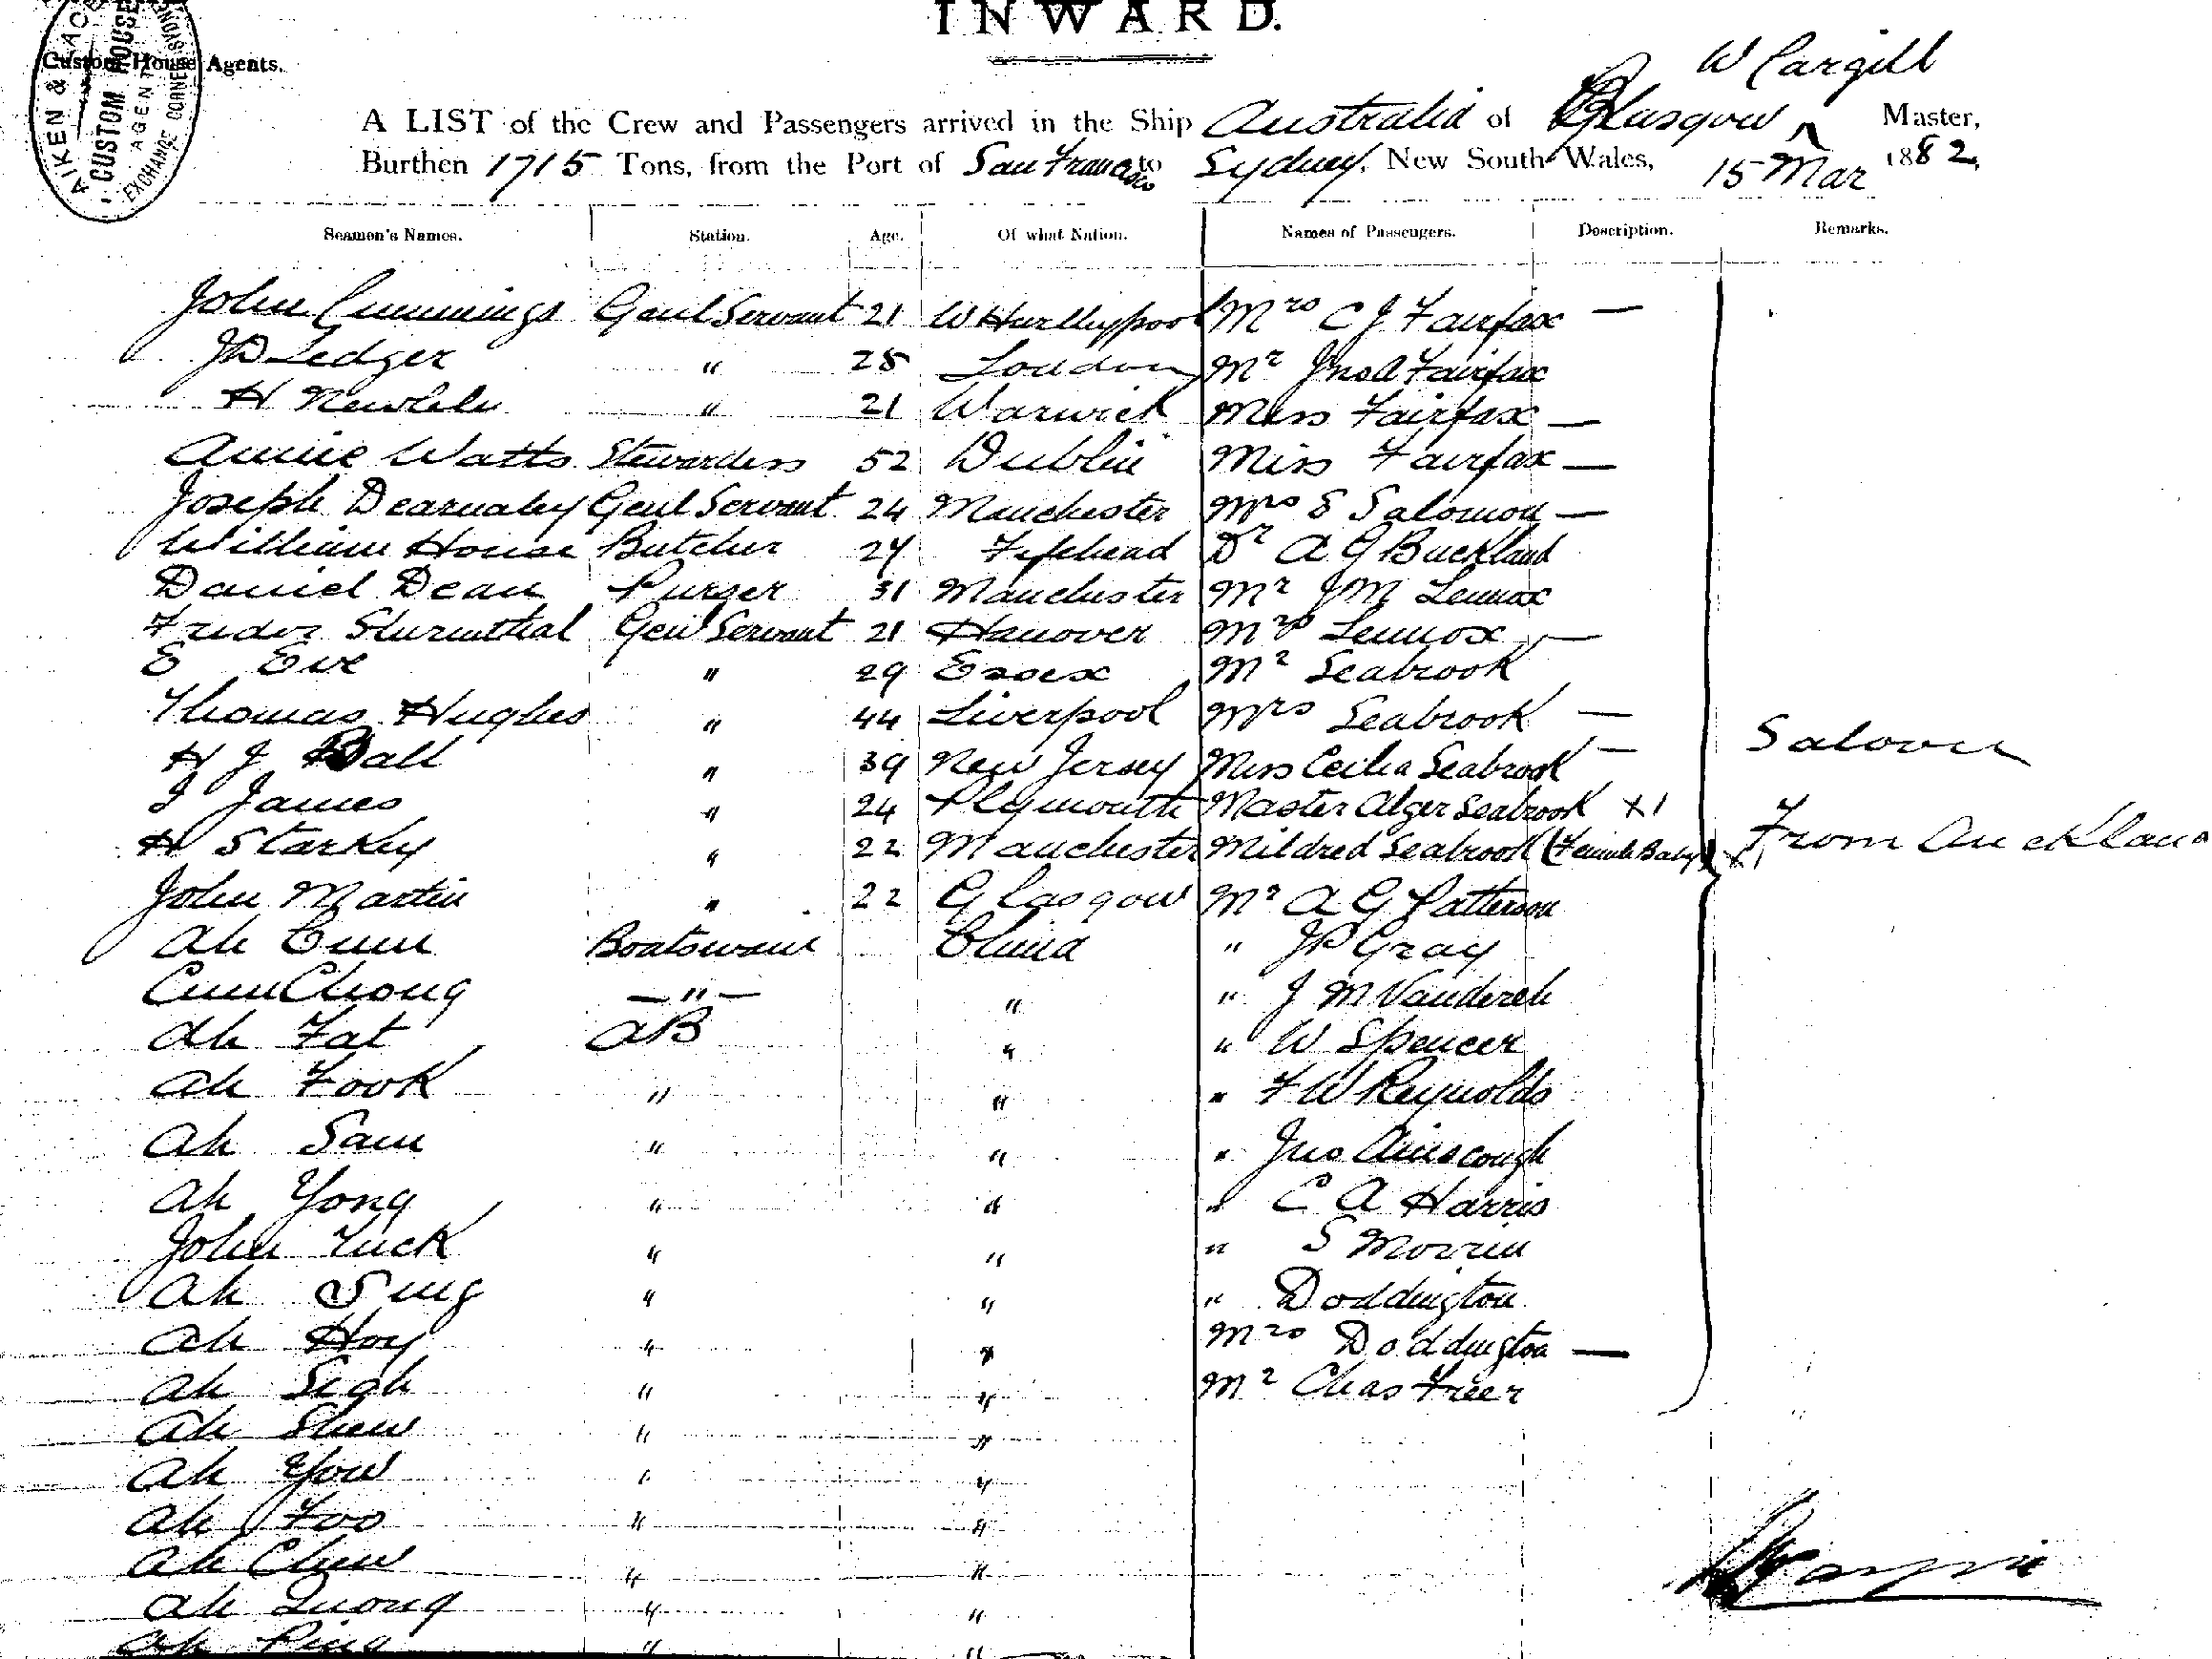 INWARD.
AIKEN &
CUSTOM HOUSE
AGENT
EXCHANGE CORNER SYDNEY
Custom House Agents.
W Cargill
A LIST of the Crew and Passengers arrived in the Ship Australia of Glasgow Master,
Burthen 1715 Tons, from the Port of San Francisco to Sydney, New South Wales, 15 Mar 1882,
Seamen's Names. Station. Age. Of what Nation. Names of Passengers. Description. Remarks.
John Cummings Genl Servant 21 W Hartlepool Mrs C J Fairfax —
J D Ledger " 25 London Mr Jas A Fairfax
H " 21 Warwick Miss Fairfax —
Annie Watts Stewardess 52 Dublin Miss Fairfax —
Joseph Dearnaley Genl Servant 24 Manchester Mrs E Salomon —
William House Butcher 24 Fifehead Dr A G Buckland
Daniel Dean Purser 31 Manchester Mr J M Lennox
Sturmthal Genl Servant 21 Hanover Mrs Lennox —
E Eve " 29 Essex Mr Seabrook
Thomas Hughes " 44 Liverpool Mrs Seabrook —
H J Ball " 39 New Jersey Miss Cecilia Seabrook —
J James " 24 Plymouth Master Alger Seabrook X1
H Starkey " 22 Manchester Mildred Seabrook (Female Baby) X1
Saloon
From Auckland
John Martin " 22 Glasgow Mr A G Patterson
Ah Cum Boatswain China " J P Gray
Cum Chong — " — " " J M
Ah Fat AB " " W Spencer
Ah Fook " " " F W Reynolds
Ah Sam " " " Jno Ainscough
Ah Yong " " " C A Harris
John Tuck " " " S Morrin
Ah Sing " " " Doddington
Ah Hoy " " Mrs Doddington —
Ah Sigh " " Mr Chas Freer
Ah Shew " "
Ah You " "
Ah Foo " "
Ah Chew " "
Ah Quong " "
Ah Ping " "